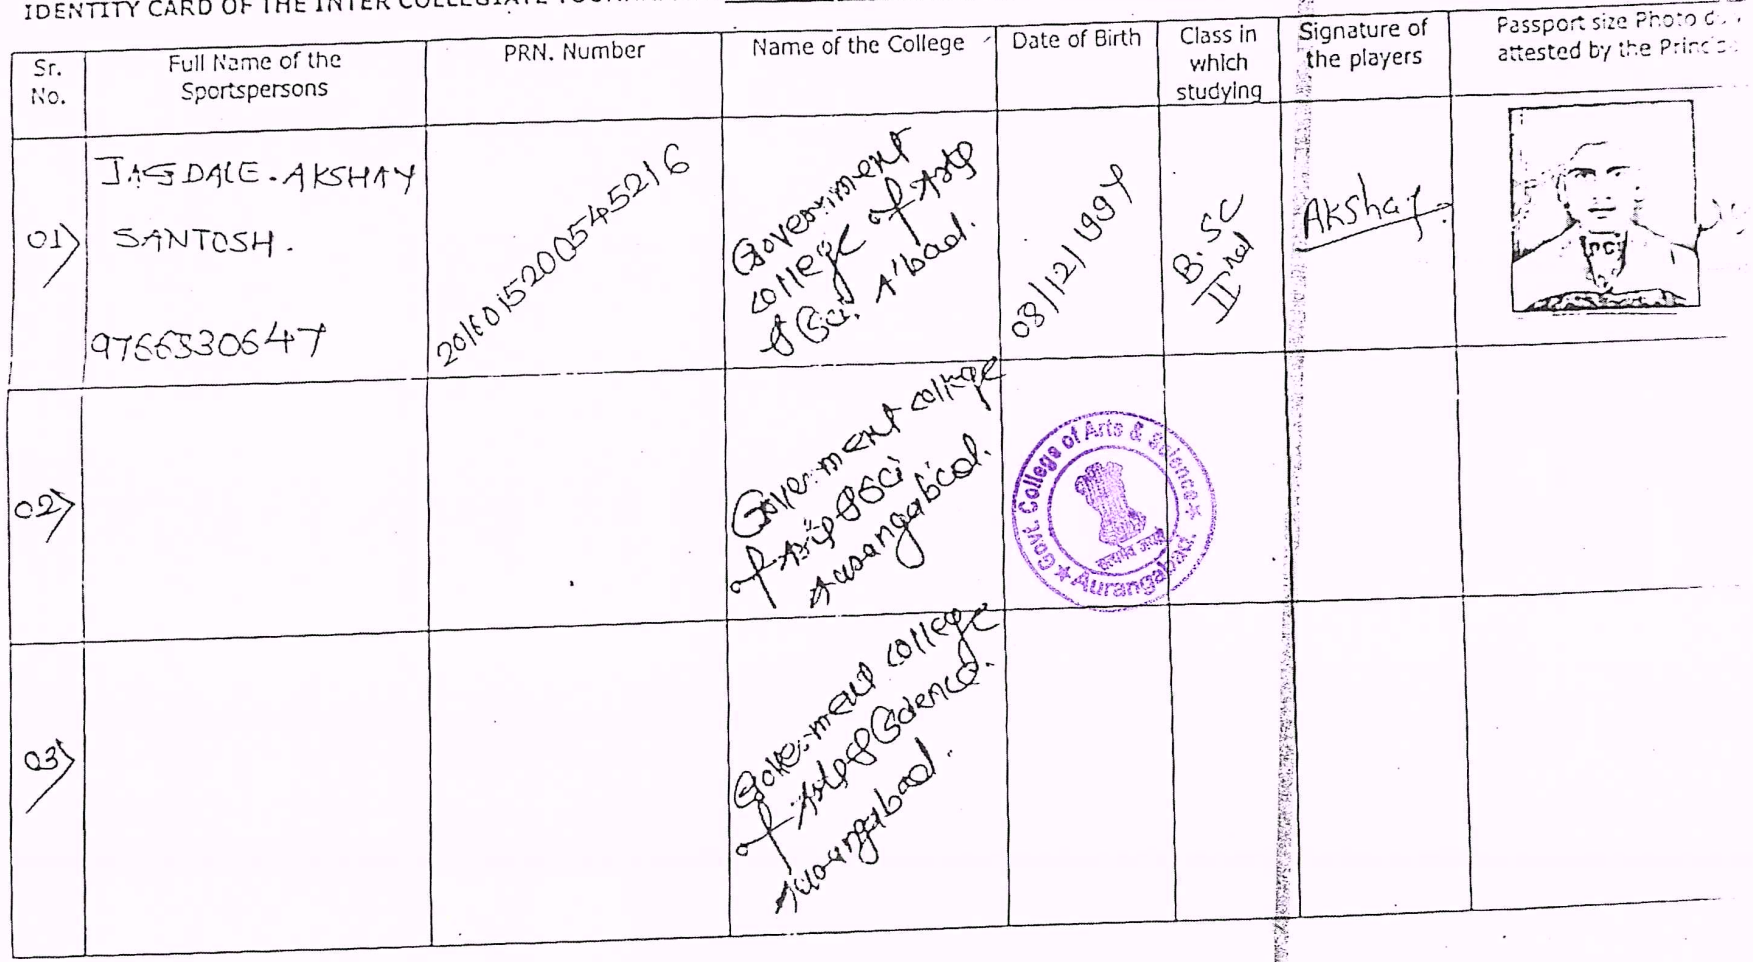 IDENTITY CARD OF THE INTER COLLEGIATE
Sr.
No.
Full Name of the
Sportspersons
PRN. Number
Name of the College
Date of Birth
Class in
which
studying
Signature of
the players
Passport size Photo
attested by the
01)
JAGDALE. AKSHAY
SANTOSH.
9766530647
2016015200545216
Government
college of Arts
& Sci. A'bad.
08/12/1997
B. SC
II nd
Akshay.
02)
Government college
of Arts & Sci
Aurangabad.
Govt. College of Arts & Science
★ Aurangabad. ★
सत्यमेव जयते
03)
Government college
of Arts & Science.
Aurangabad.